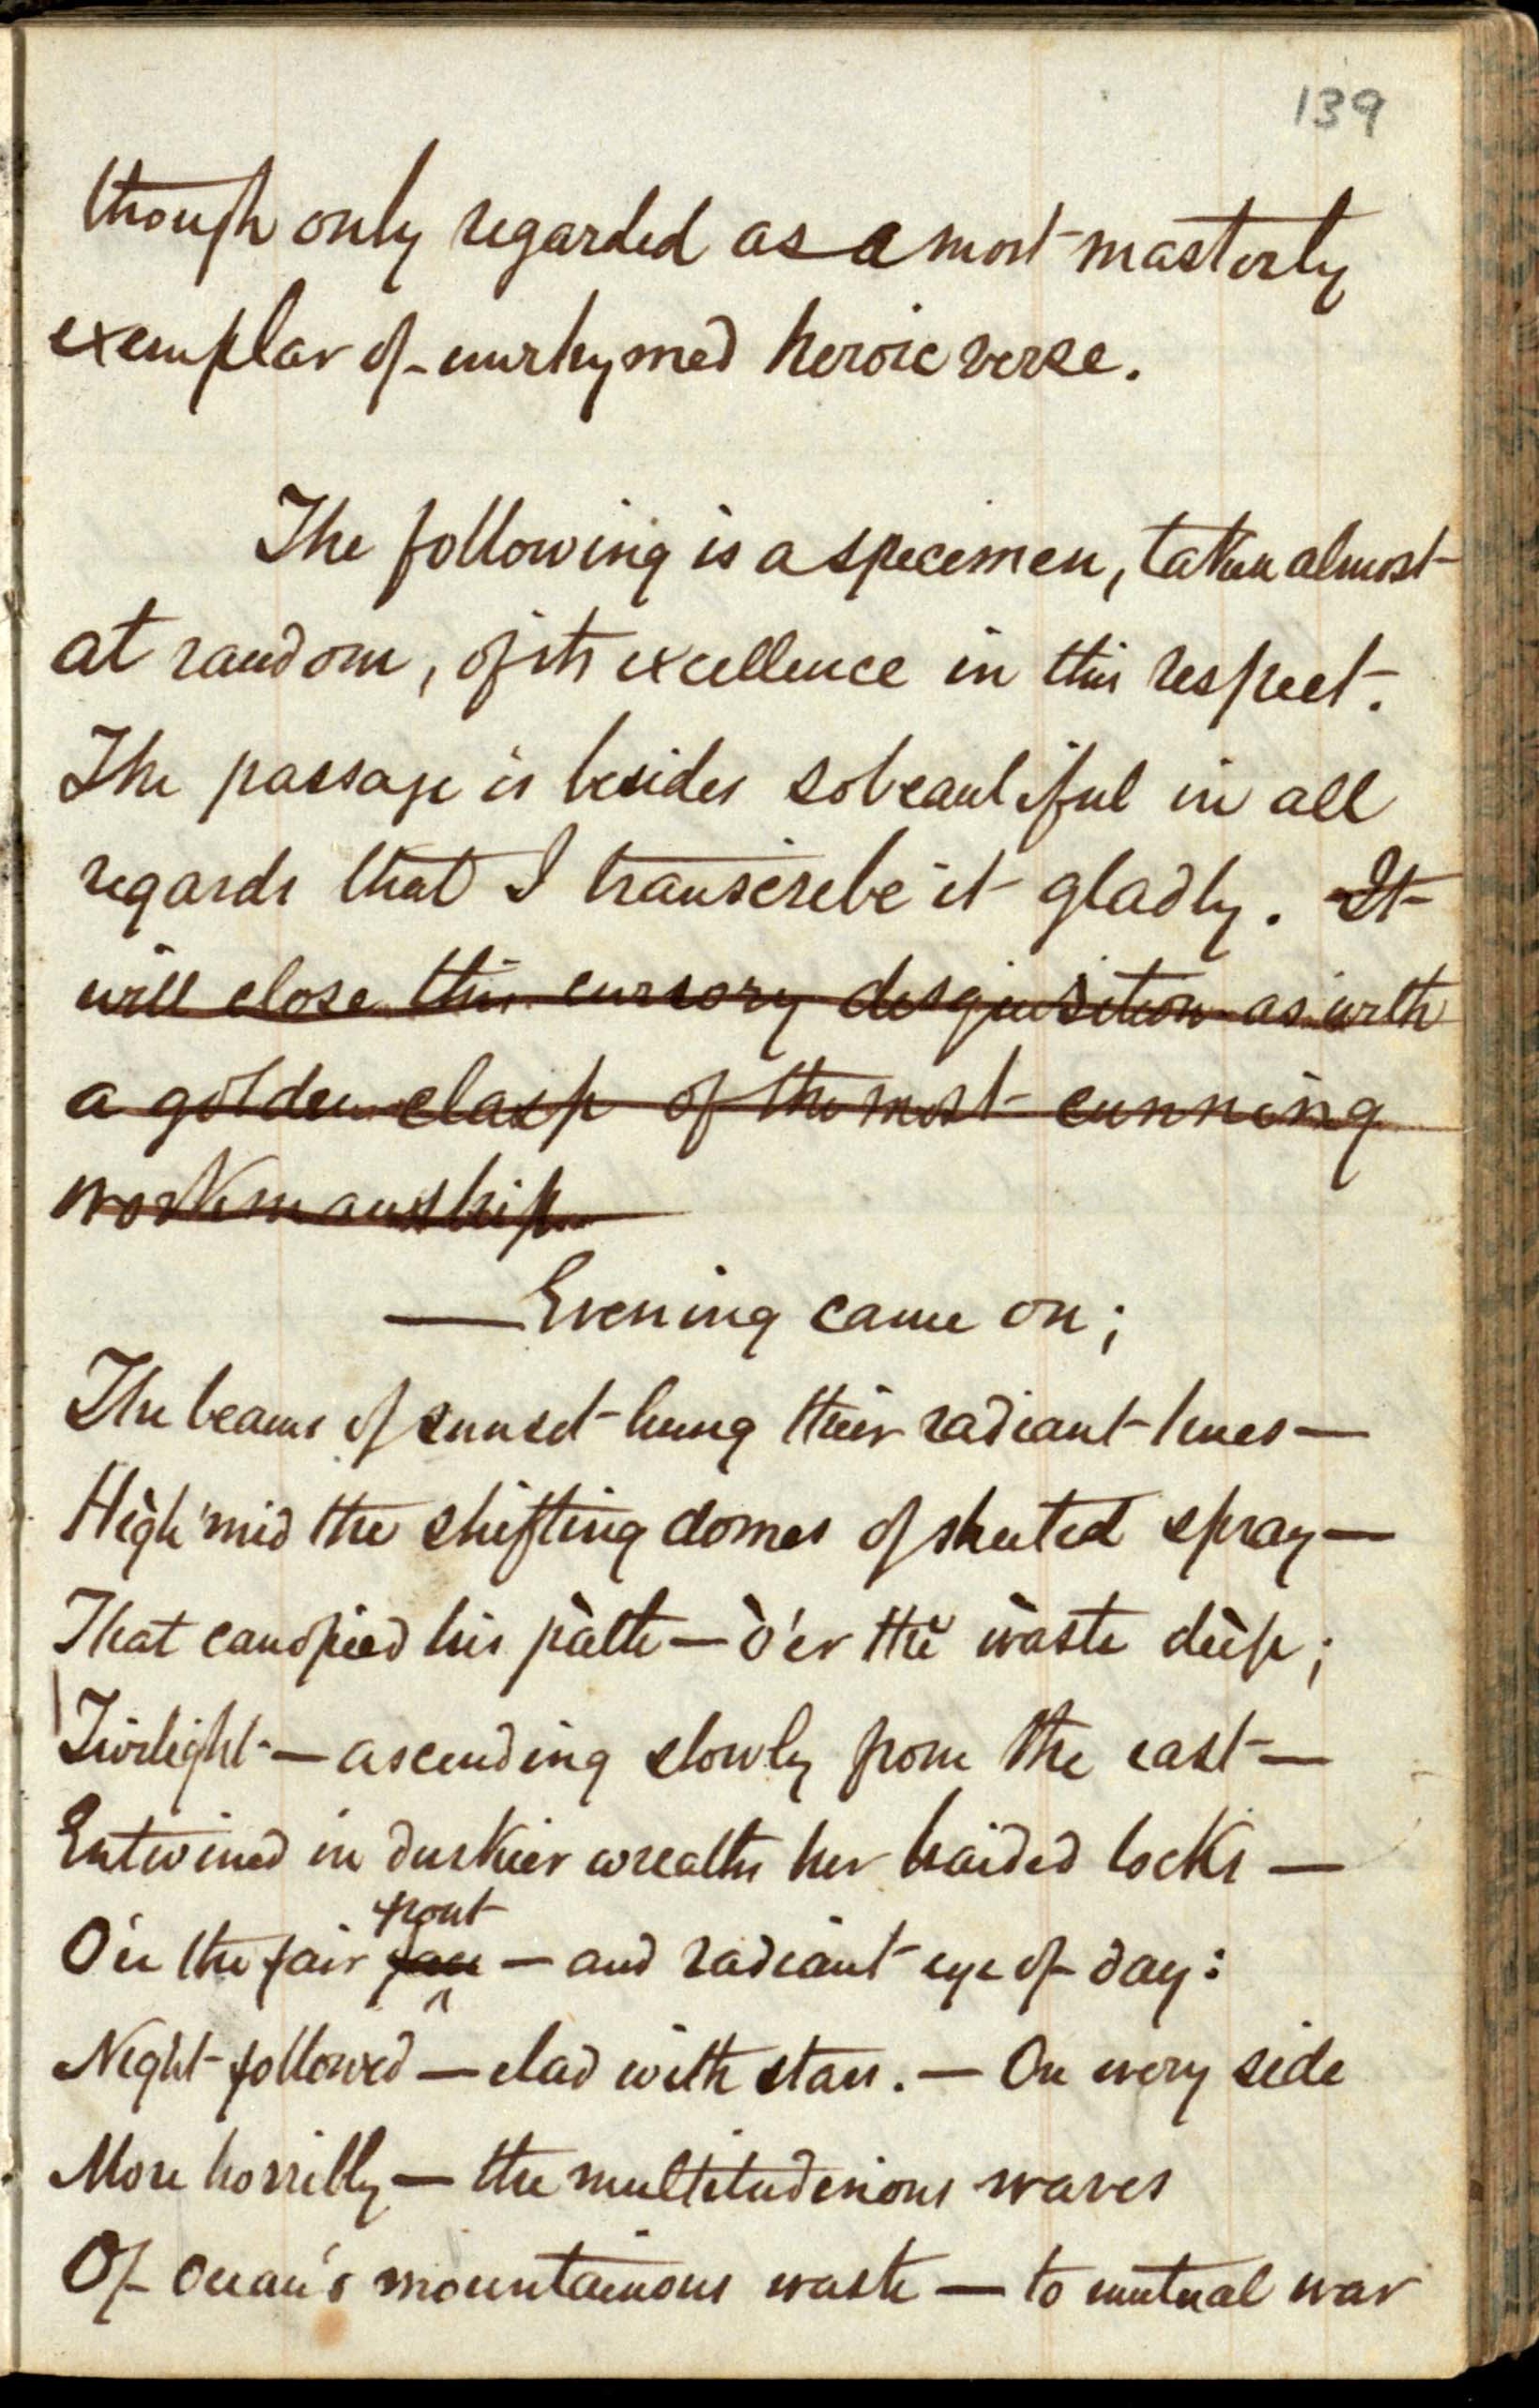 139
though only regarded as a most masterly
exemplar of unrhymed heroic verse.
The following is a specimen, taken almost
at random, of its excellence in this respect.
The passage is besides so beautiful in all
regards that I transcribe it gladly. It
will close this cursory disquisition as with
a golden clasp of the most cunning
workmanship
— Evening came on;
The beams of sunset hung their radiant hues —
High 'mid the shifting domes of sheeted spray —
That canopied his path — o'er the waste deep;
Twilight — ascending slowly from the east —
Entwined in duskier wreaths her braided locks —
O'er the fair face front — and radiant eye of day:
Night followed — clad with stars. — On every side
More horribly — the multitudinous waves
Of ocean's mountainous waste — to mutual war